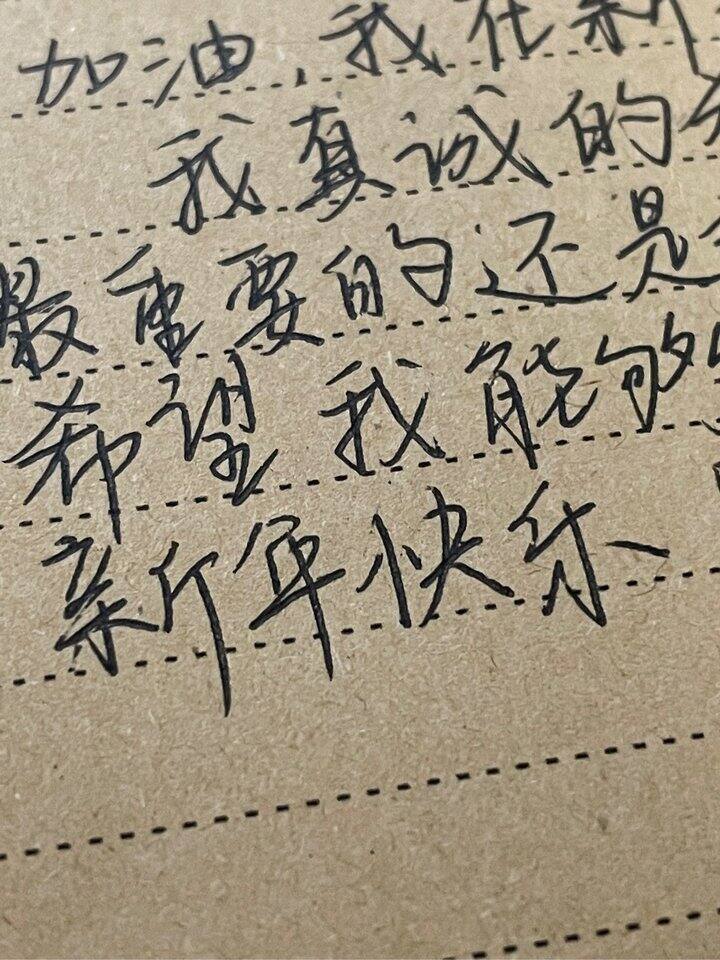 加油，我在新
我真诚的
最重要的还是
希望我能够
新年快乐